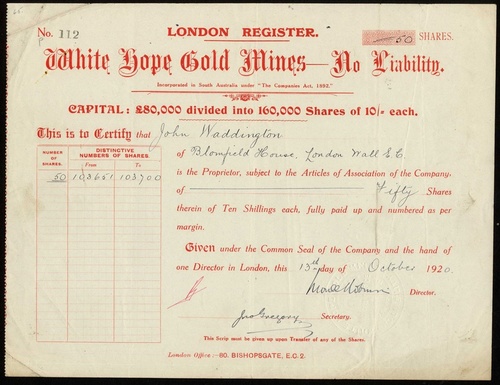 No. P 112
LONDON REGISTER.
50 SHARES.
White Hope Gold Mines—No Liability.
Incorporated in South Australia under "The Companies Act, 1892."
CAPITAL: £80,000 divided into 160,000 Shares of 10/- each.
This is to Certify that John Waddington
of Blomfield House, London Wall E.C.
is the Proprietor, subject to the Articles of Association of the Company,
of Fifty Shares
therein of Ten Shillings each, fully paid up and numbered as per
margin.
NUMBER OF SHARES.
DISTINCTIVE NUMBERS OF SHARES.
From To
50 103651 103700
Given under the Common Seal of the Company and the hand of
one Director in London, this 13th day of October 1920.
Director.
Jno Gregory Secretary.
This Scrip must be given up upon Transfer of any of the Shares.
London Office:—60, BISHOPSGATE, E.C. 2.